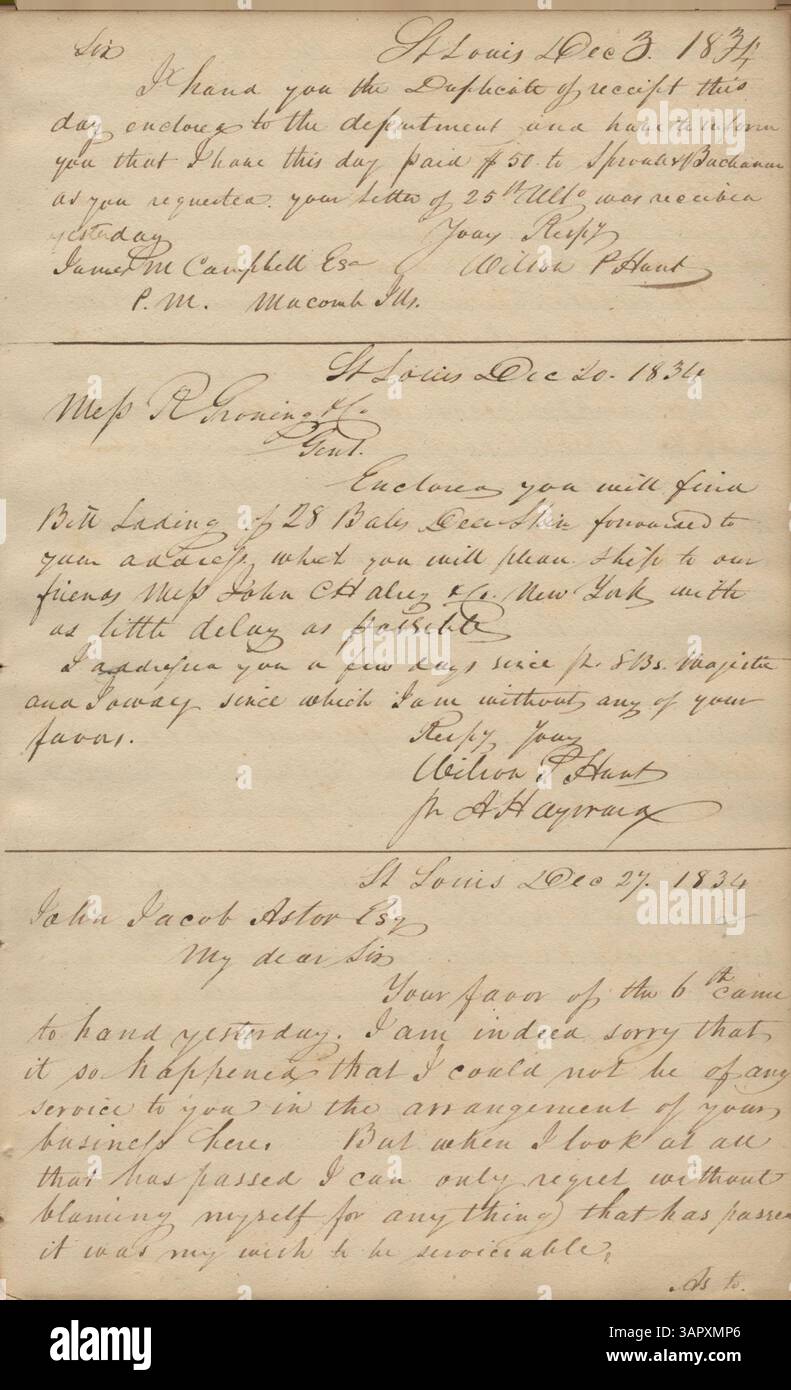 Sir St Louis Dec 3. 1834
I hand you the Duplicate of receipt this
day enclosed to the department and have to inform
you that I have this day paid $50. to Sproule & Buchanan
as you requested. your letter of 25th Ulto was received
yesterday Your Respy
James M Campbell Esq Wilson P Hunt
P. M. Macomb Ills.
St Louis Dec 20. 1834
Mess R Groning & Co
Gent.
Enclosed you will find
Bill Lading of 28 Bales Deer Skin forwarded to
your address, what you will please ship to our
friends Mess John C Halsey & Co. New York with
as little delay as possible
I addressed you a few days since pr. S Bs. Majestic
and Ioway since which I am without any of your
favors. Respy Your
Wilson P Hunt
pr A Hayward
St Louis Dec 27. 1834
John Jacob Astor Esq
My dear Sir
Your favor of the 6th came
to hand yesterday. I am indeed sorry that
it so happened that I could not be of any
service to you in the arrangement of your
business here. But when I look at all
that has passed I can only regret without
blaming myself for any thing that has passed
it was my wish to be serviceable.
As to.
a
alamy
alamy
Image ID: 3APXMP6
www.alamy.com